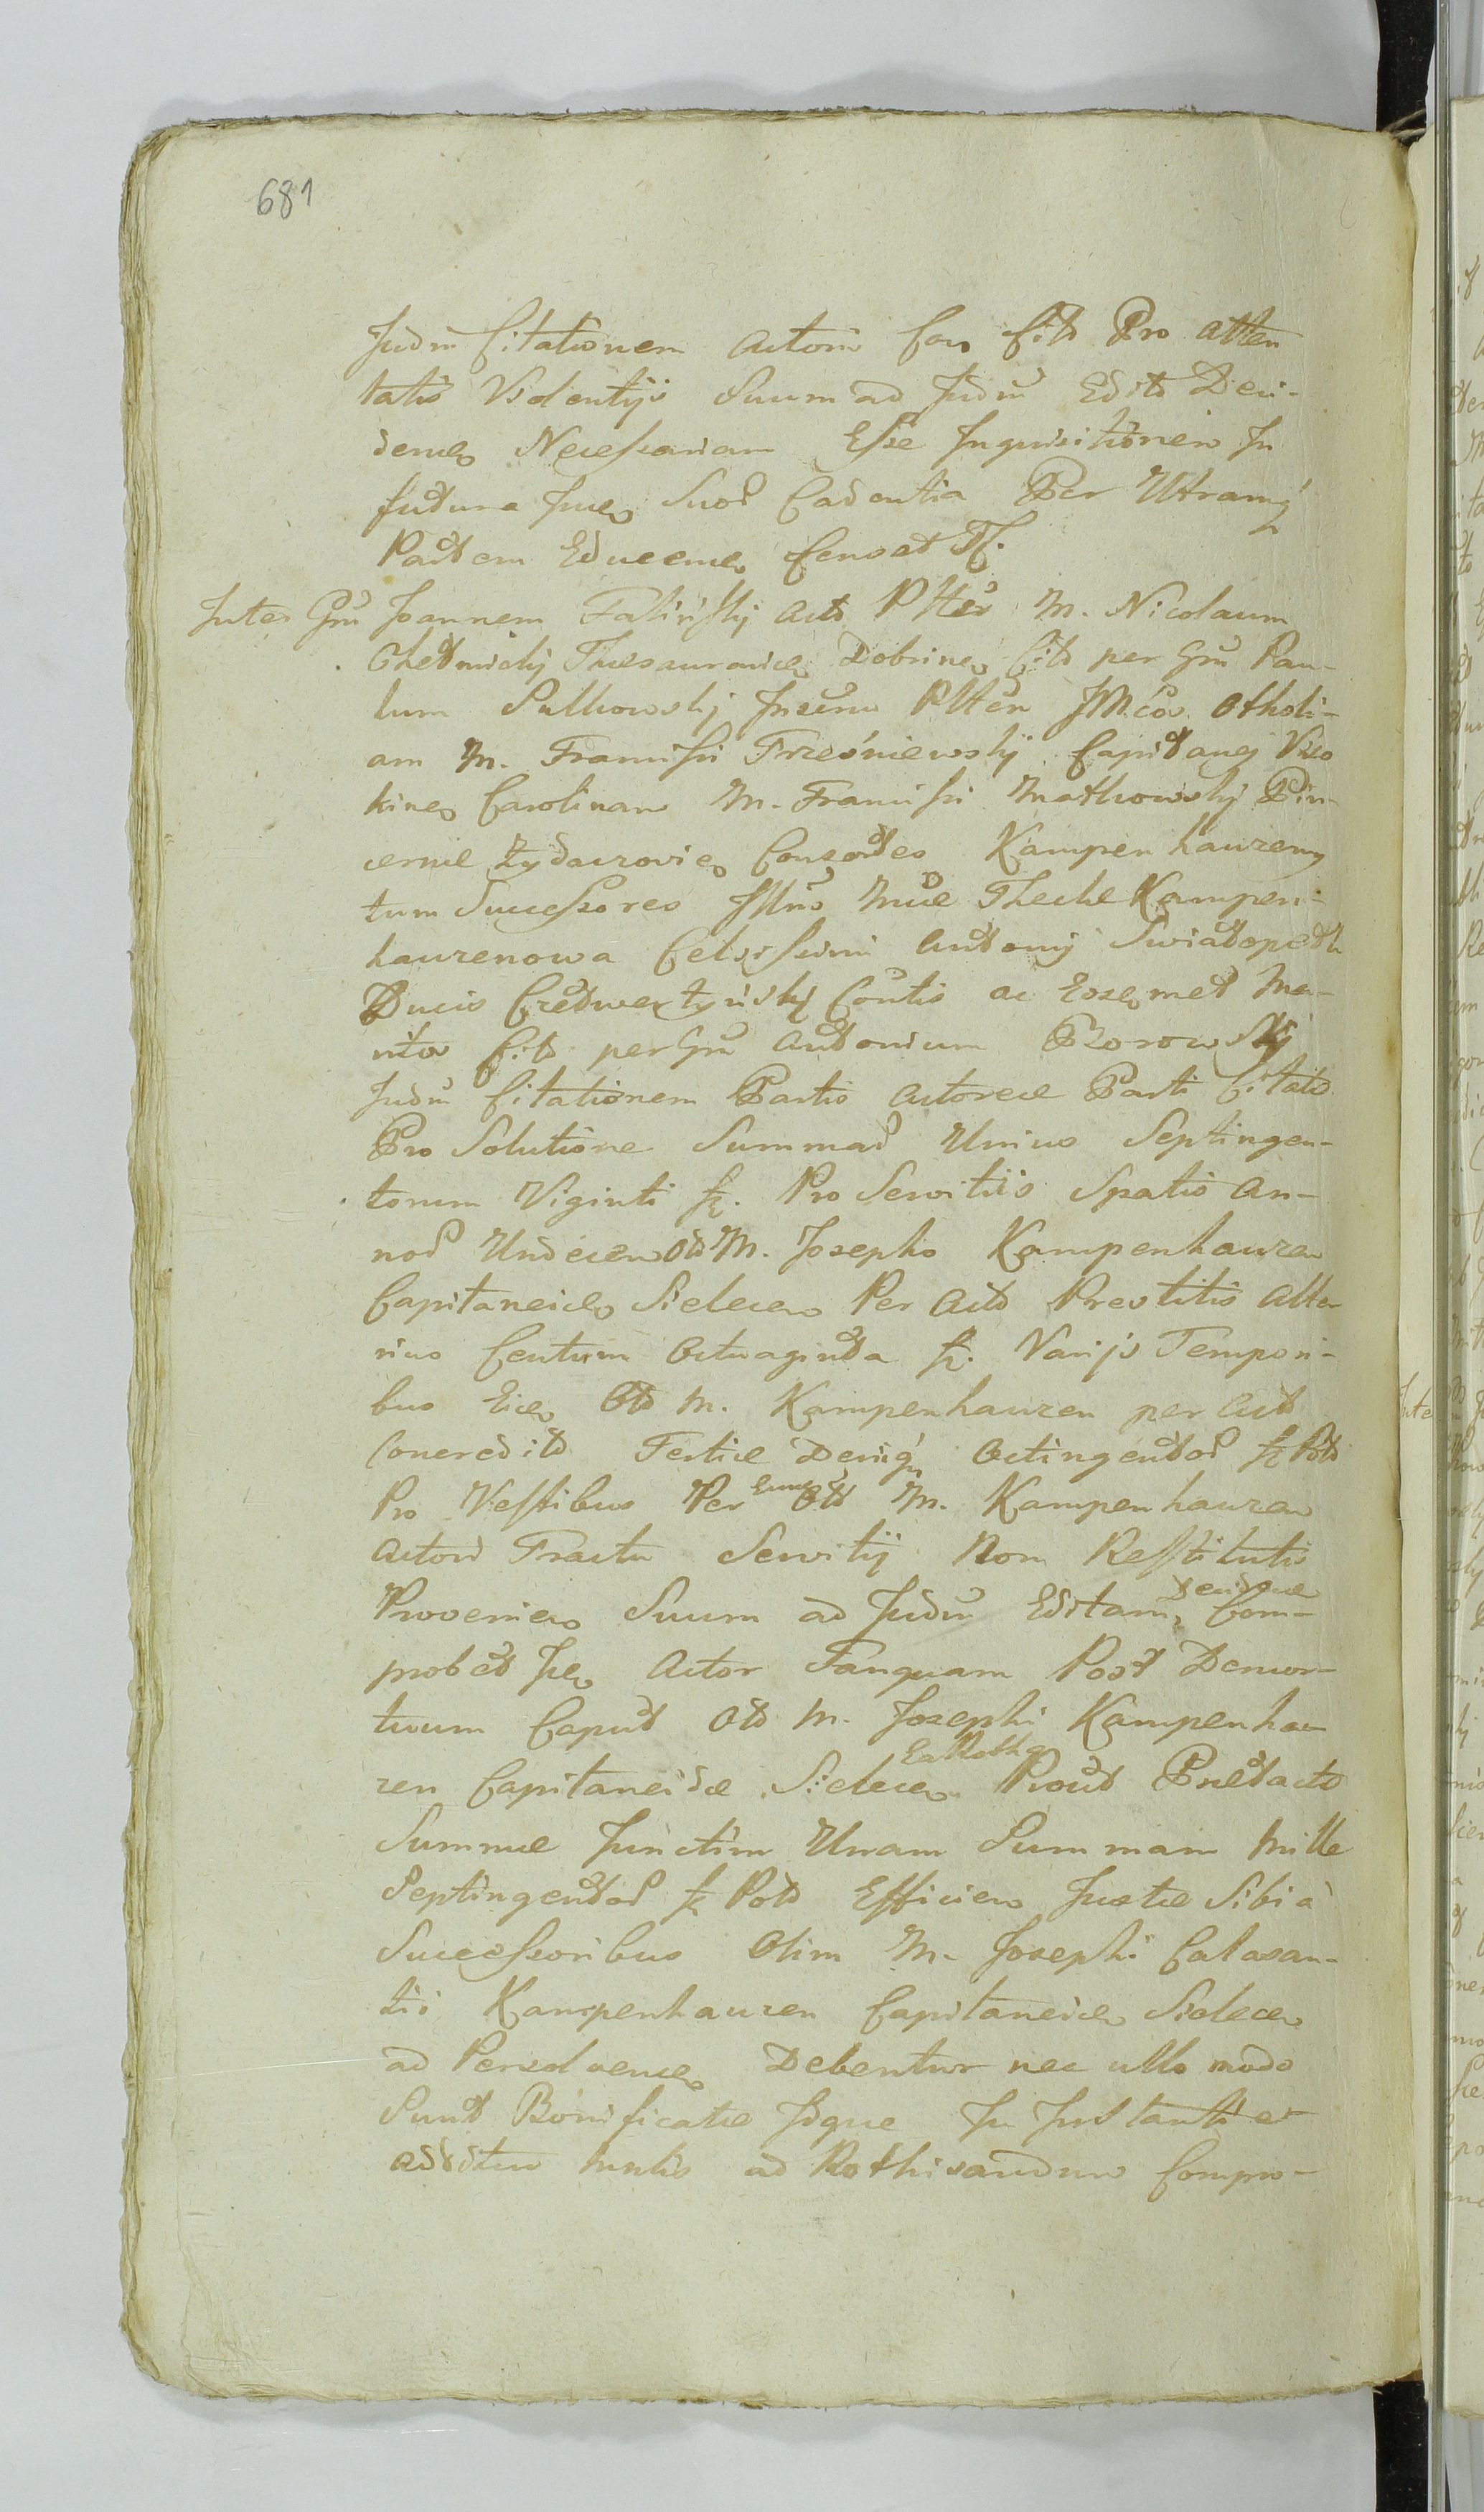 681
Judm Citationem Actori Con Citd Pro atten
tatis Violentijs Suum ad Judm Edito Deci-
dende Necessariam Esse Inquisitionem In
futura Suod Cadentia Per Utramq
Partem Educend Censet Jt.
Inter Gnm Joannem Falinskj Actd Ptter M. Nicolaum
Chedmickj Thesauranicd Dobrinen Citd per Gnm Pau-
lum Sulkowskj Ptten Othili-
am M. Francissi Trzesniewskj Capitanej
kinen Carolinam M. Francissi Malhowskj Pin-
cernae Zydaczovien Consortes Kampenhauzeny
tum Successores Theclae Kampen-
hauzenowa Celsissimi Antonij Swiatopelk
Ducis Czetwertynskj Contis ac Eosemet Ma-
Citd per Gnm Antonium Borowskj
Judm Citationem Partis Actoreae Parti Citatd
Pro Solutione Summad Unius Septingen-
torum Viginti fl. Pro Servitiis Spatio An-
nod Undecem Otd M. Josepho Kampenhauzen
Capitaneicd Sielecen Per Actd Prestitis Alte
rius Centum Octuaginta fl. Varijs Tempori-
bus Otd M. Kampenhauzen per Act
Concredito Tertiae Deniq Octingentod fl Pold
Pro Vestibus Per Eund Otd M. Kampenhauzen
Actori Tractu Servitij Non Restitutis
Provenien Suum ad Judm Editam, Decidende Com-
probet Actor Tanquam Post Demor-
tuum Caput Otd M. Josephi Kampenhau
zen Capitaneidae Sielecen Prout Praetacto
Summae Junctim Unam Summam Mille
Septingentod fl Pold Efficien Justae Sibi à
Successoribus Olim M. Josephi Calasan-
tii Kampenhauzen Capitaneicd Sielecen
ad Persolvend Debentur nec ullo modo
Sunt Bonificatae Sique In Instanti et
additur ad Rothisandum Compro-